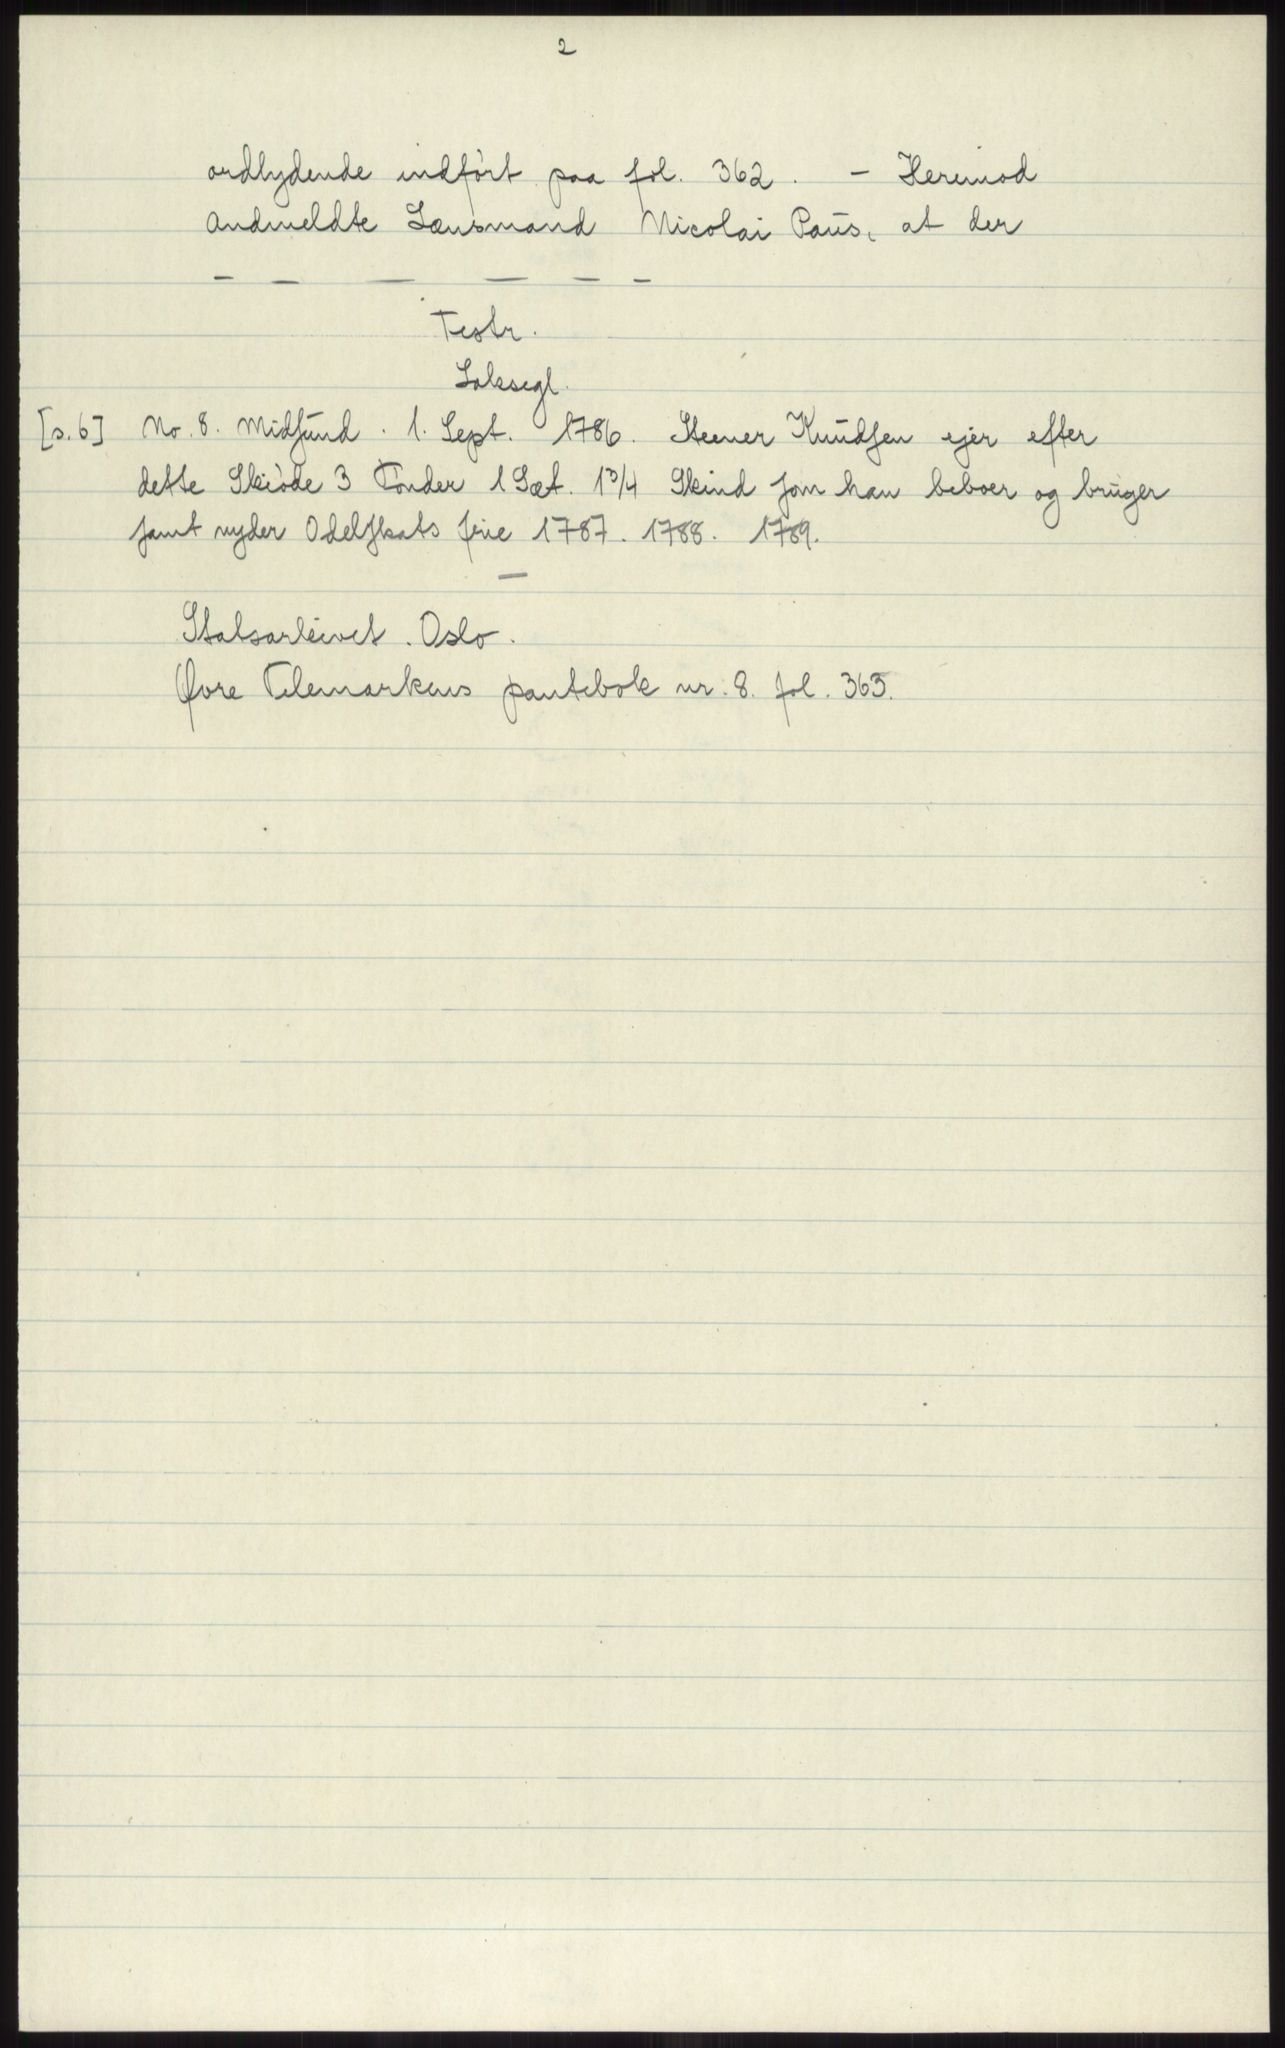 2
ordlydende indført paa fol. 362. – Herimod
Andmeldte Lænsmand Nicolai Paus, at der
— — — — — —
Testr.
Laksegl.
[s. 6] No. 8. Midsund. 1. Sept. 1786. Steener Knudsen ejer efter
dette Skiøde 3 Tønder 1 Sæt. 1 3/4 Skind som han beboer og bruger
samt nyder Odelskats frie 1787. 1788. 1789.
—
Statsarkivet. Oslo.
Øvre Telemarkens pantebok nr. 8. fol. 363.